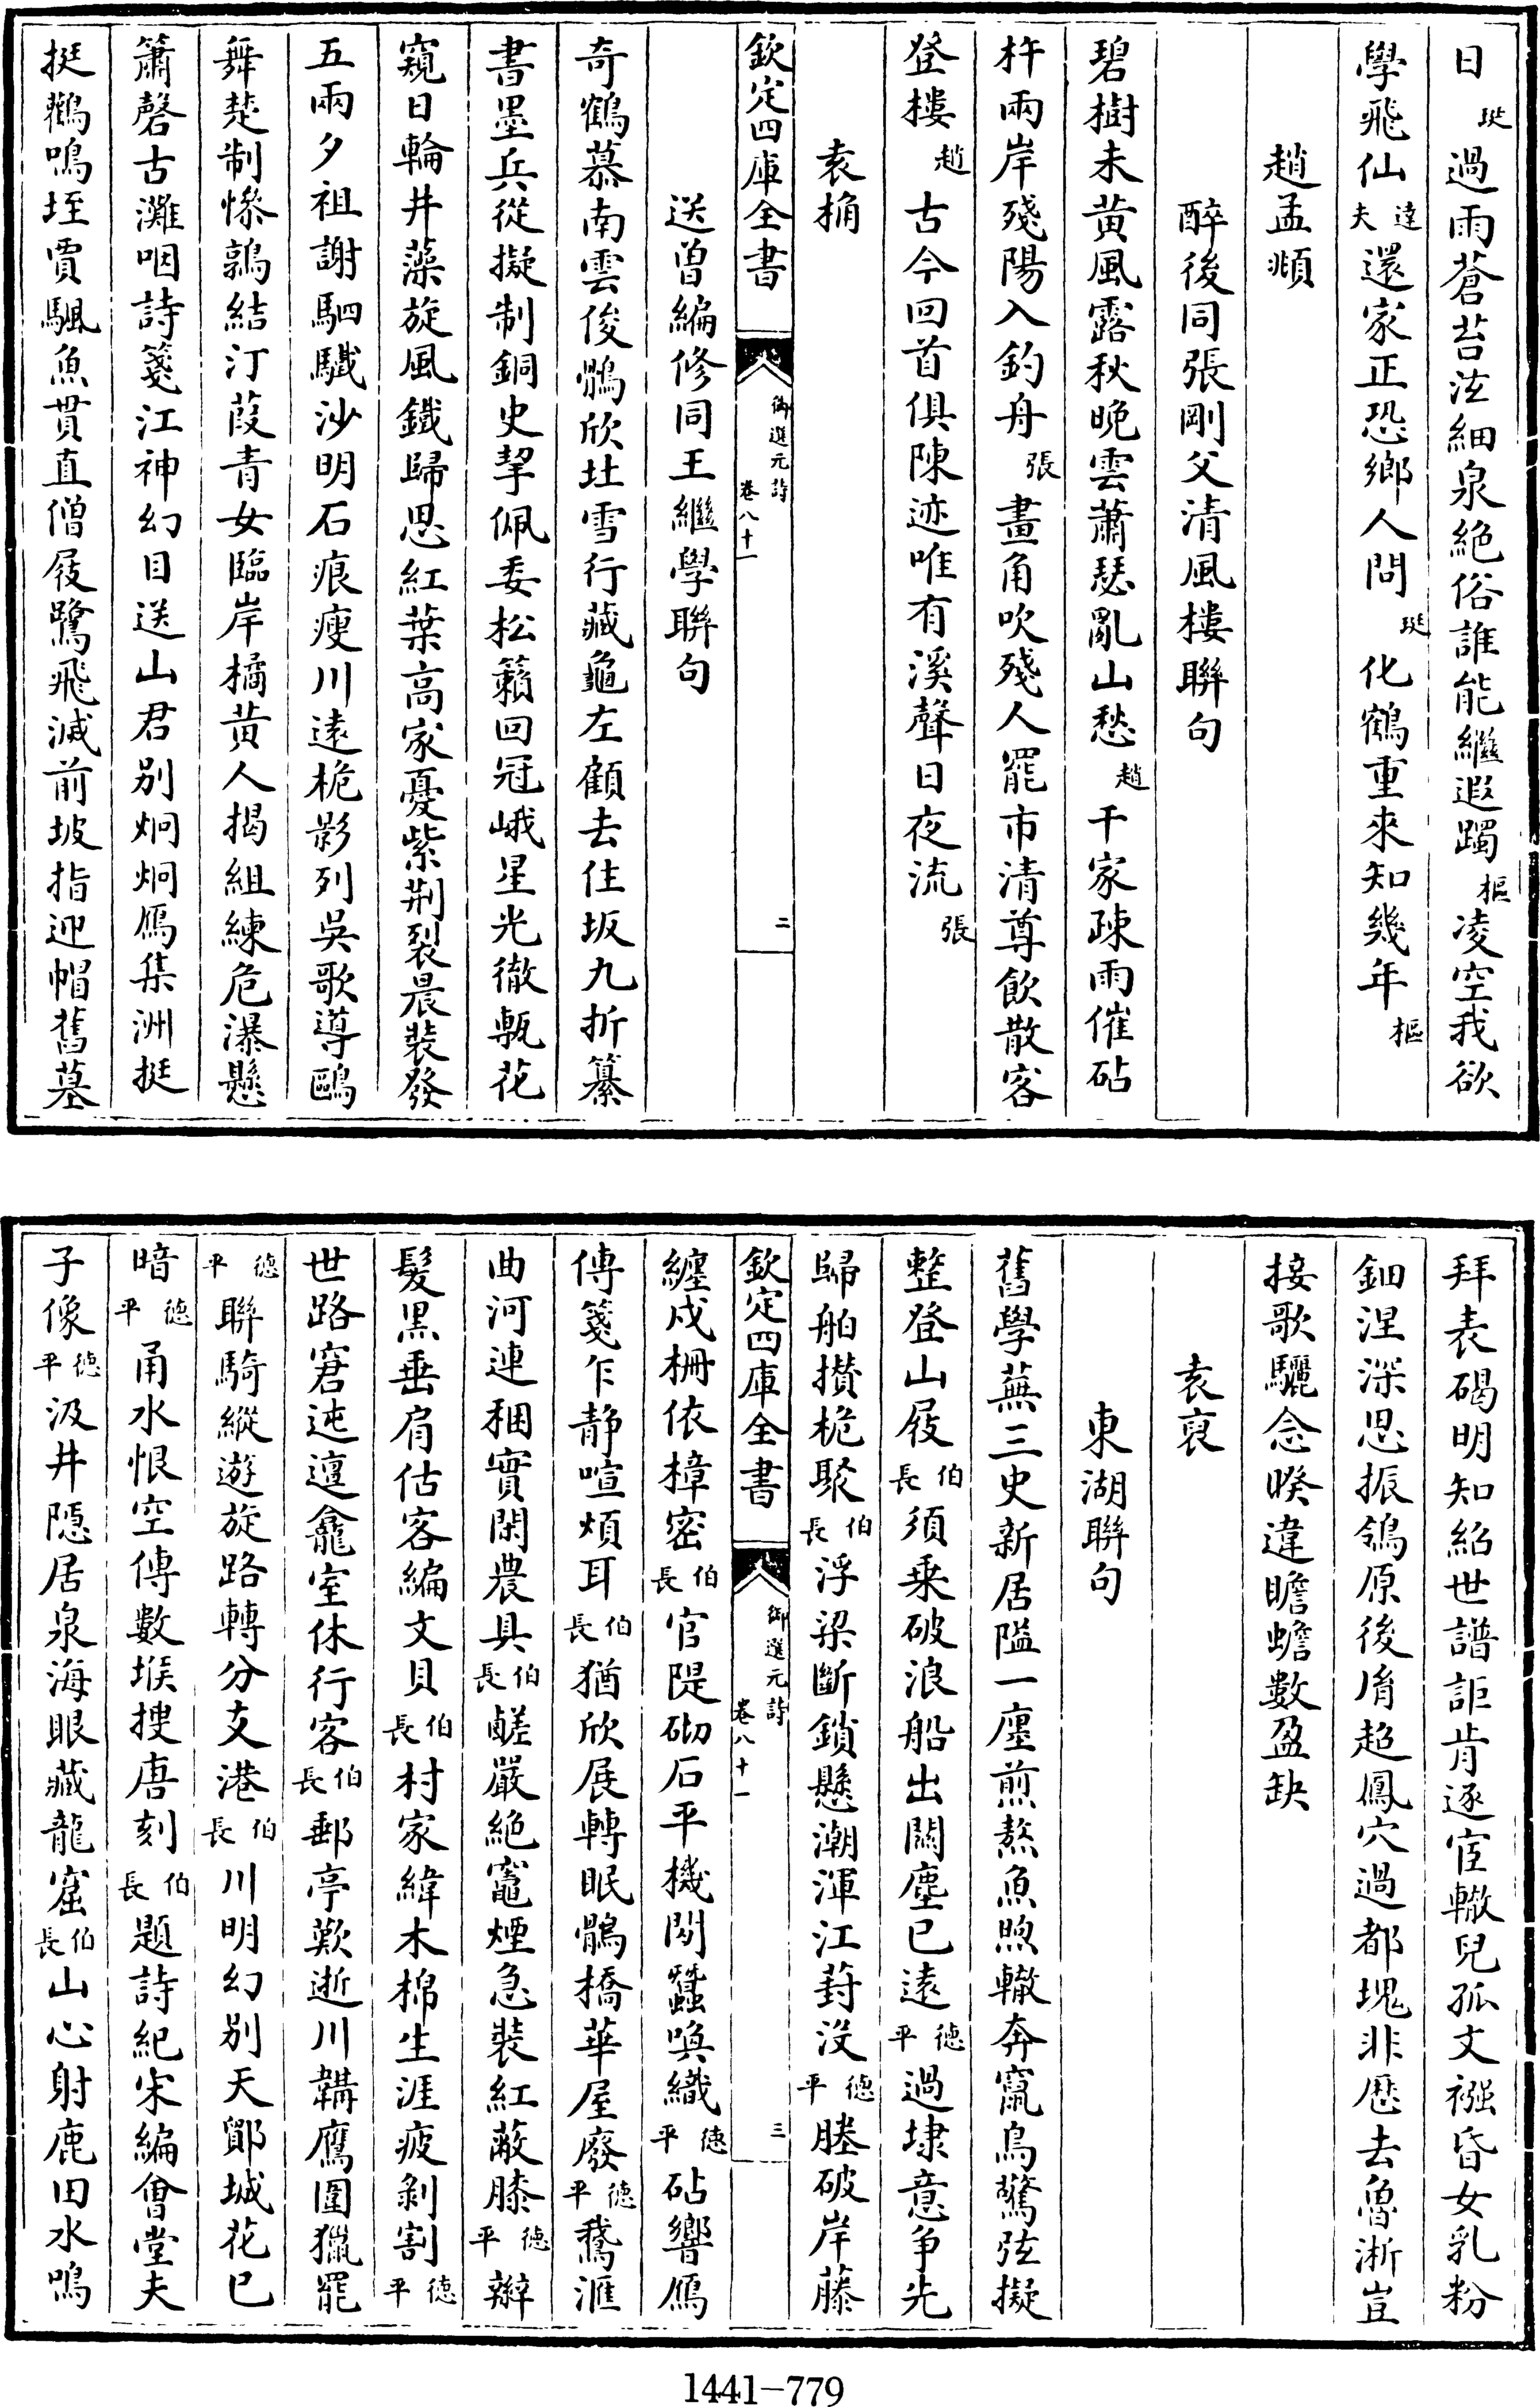 日珽過雨蒼苔泫細泉絶俗誰能繼遐躅樞凌空我欲
學飛仙達夫還家正恐鄉人問珽化鶴重來知幾年樞
趙孟頫
醉後同張剛父清風樓聯句
碧樹未黄風露秋晚雲蕭瑟亂山愁趙千家疎雨催砧
杵兩岸殘陽入釣舟張畫角吹殘人罷市清尊飲散客
登樓趙古今回首俱陳迹唯有溪聲日夜流張
袁桷
欽定四庫全書
御選元詩
卷八十一
二
送曾編修同王繼學聯句
奇鶴慕南雲俊鶻欣壯雪行藏龜左顧去住坂九折纂
書墨兵從擬制銅史挈佩委松籟回冠峨星光徹甎花
窺日輪井藻旋風鐵歸思紅葉高家憂紫荆裂晨裝發
五兩夕祖謝駟驖沙明石痕瘦川遠桅影列吳歌導鷗
舞楚制慘鶉結汀葭青女臨岸橘黄人揭組練危瀑懸
簫磬古灘咽詩箋江神幻目送山君别炯炯鴈集洲挺
挺鸛鳴垤賈颿魚貫直僧屐鷺飛滅前坡指迎帽舊墓
拜表碣明知紹世譜詎肯逐宦轍兒孤文襁昏女乳粉
鈿涅深思振鴒原後脩超鳳穴過都塊非歴去魯淅豈
接歌驪念暌違瞻蟾數盈缺
袁裒
東湖聯句
舊學蕪三史新居隘一廛煎熬魚煦轍奔竄鳥驚弦擬
整登山屐伯長須乗破浪船出闗塵已遠德平過埭意争先
歸舶攅桅聚伯長浮梁斷鎖懸潮渾江葑没德平塍破岸藤
欽定四庫全書
御選元詩
卷八十一
三
纏戍栅依樟密伯長官隄砌石平機閲蠶喚織德平砧響鴈
傳箋乍静喧煩耳伯長猶欣展轉眠鶻橋華屋廢德平鵞滙
曲河連稛實閑農具伯長鹺嚴絶竈煙急裝紅蔽膝德平辮
髪黒垂肩估客編文貝伯長村家緯木棉生涯疲剥割德平
世路窘迍邅龕室休行客伯長郵亭歎逝川韝鷹圍獵罷
德平聯騎縱遊旋路轉分支港伯長川明幻别天鄮城花已
暗德平甬水恨空傳數堠搜唐刻伯長題詩紀宋編會堂夫
子像德平汲井隠居泉海眼藏龍窟伯長山心射鹿田水鳴
1441-779